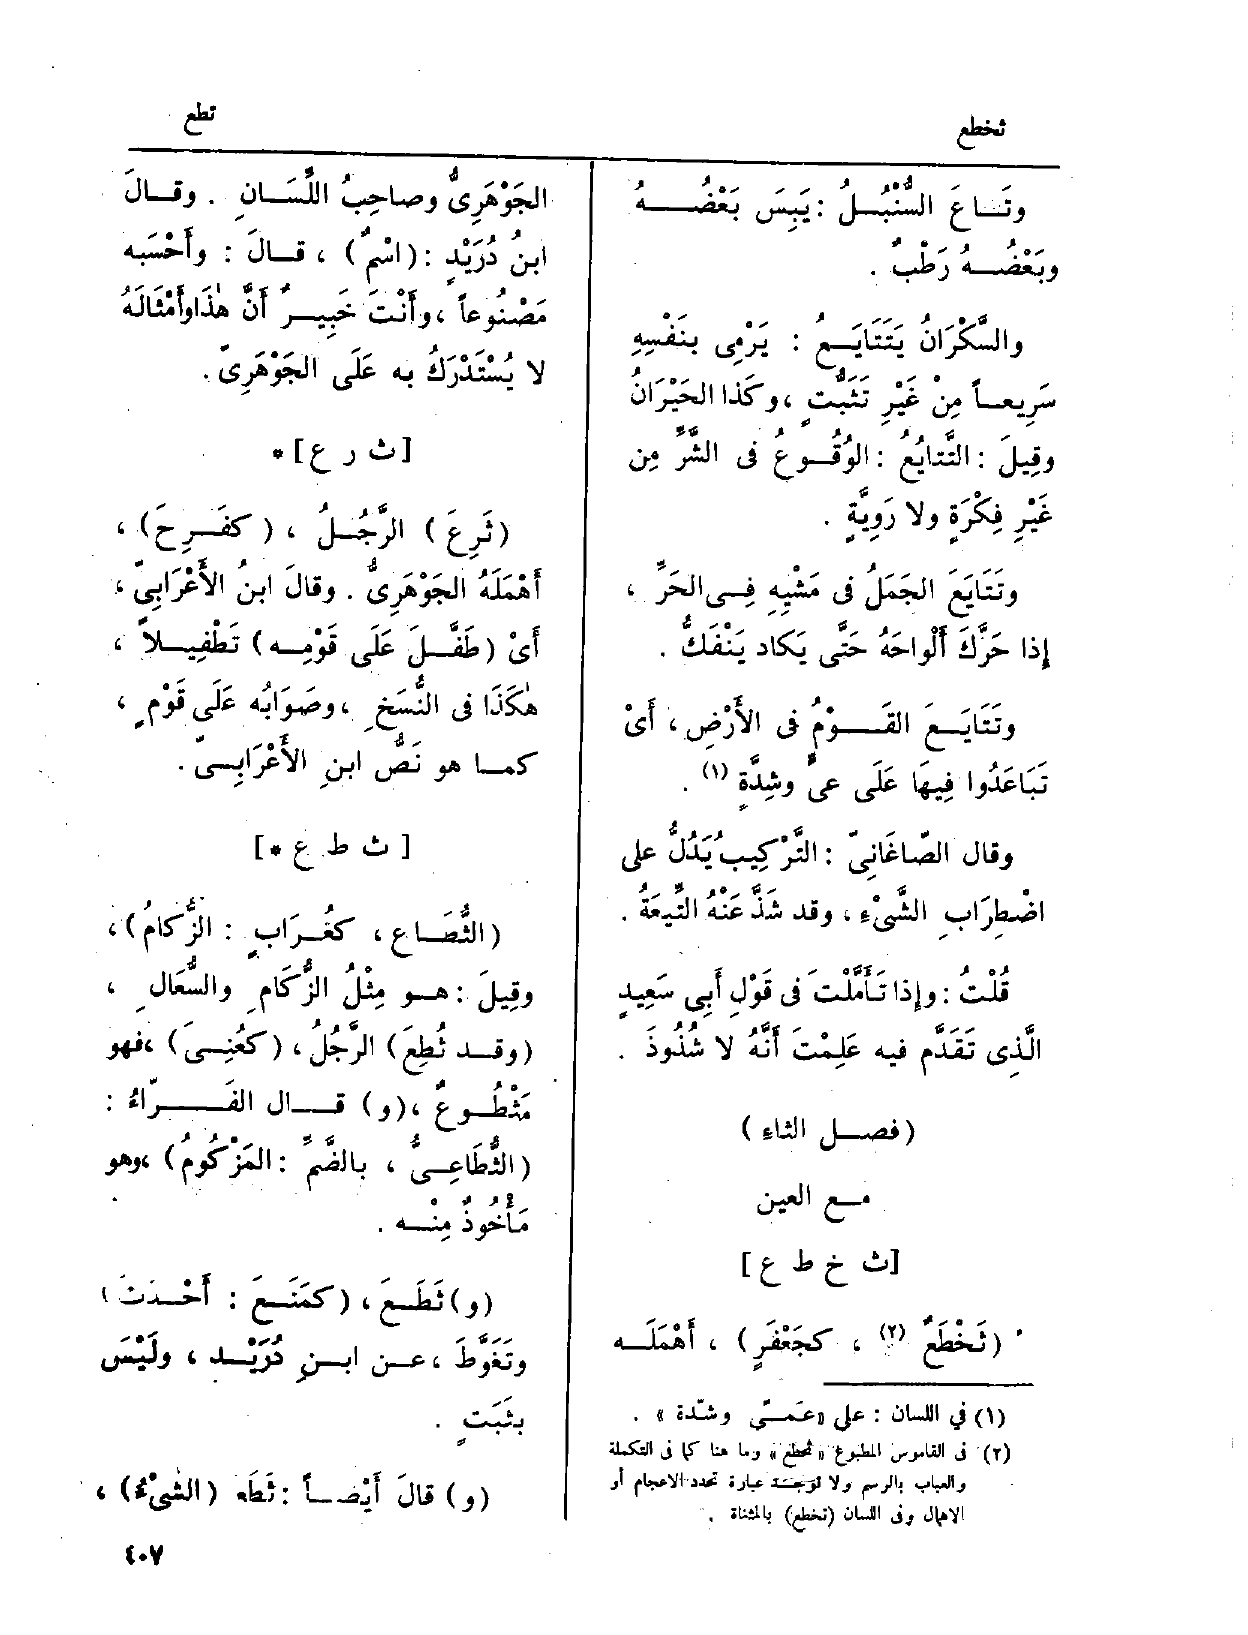 ثخطع
ثطع
وتَاعَ السُّنْبُلُ : يَبِسَ بَعْضُهُ
وبَعْضُهُ رَطْبٌ .
والسَّكْرَانُ يَتَتَايَعُ : يَرْمِى بنَفْسِهِ
سَرِيعاً مِنْ غَيْرِ تَثَبُّتٍ ، وكَذا الحَيْرَانُ
وقِيلَ : التَّتايُعُ : الوُقُوعُ فى الشَّرِّ مِن
غَيْرِ فِكْرَةٍ ولا رَوِيَّةٍ .
وتَتَايَعَ الجَمَلُ فى مَشْيِهِ فِى الحَرِّ ،
إذا حَرَّكَ أَلْواحَهُ حَتَّى يَكاد يَنْفَكُّ .
وتَتَايَعَ القَوْمُ فى الأَرْضِ ، أَىْ
تَبَاعَدُوا فِيهَا عَلَى عَىٍّ وشِدَّةٍ (١) .
وقال الصّاغَانِىّ : التَّرْكِيبُ يَدُلُّ على
اضْطِرَابِ الشَّىْءِ ، وقد شَذَّ عَنْهُ التِّيعَةُ .
قُلْتُ : وإذا تَأَمَّلْتَ فى قَوْلِ أَبِى سَعِيدٍ
الَّذِى تَقَدَّم فيه عَلِمْتَ أَنَّهُ لا شُذُوذَ .
( فصل الثاء )
مع العين
[ث خ ط ع]
( ثَخْطَعٌ (٢) ، كجَعْفَرٍ ) ، أَهْمَلَه
(١) في اللسان : على «عَمًى وشدّة » .
(٢) فى القاموس المطبوع « ثُخطع » وما هنا كما فى التكملة
والعباب بالرسم ولا توجد عبارة تحدد الاعجام أو
الاهمال وفى اللسان (تخطع) بالمثناة .
الجَوْهَرِىُّ وصاحِبُ اللِّسَانِ . وقالَ
ابنُ دُرَيْدٍ : (اسْمٌ ) ، قالَ : وأَحْسَبه
مَصْنُوعاً ، وأَنْتَ خَبِيرٌ أَنَّ هٰذَا وأَمْثَالَهُ
لا يُسْتَدْرَكُ به عَلَى الجَوْهَرِىّ .
[ث ر ع] *
(ثَرِعَ ) الرَّجُلُ ، ( كفَرِحَ) ،
أَهْمَلَهُ الجَوْهَرِىُّ . وقالَ ابنُ الأَعْرَابِىّ ،
أَىْ (طَفَّلَ عَلَى قَوْمِه ) تَطْفِيلاً ،
هٰكَذَا فى النُّسَخِ ، وصَوَابُه عَلَى قَوْمٍ ،
كما هو نَصُّ ابنِ الأَعْرَابِىّ .
[ ث ط ع *]
(الثُّطَاع ، كغُرَابٍ : الزُّكامُ ) ،
وقِيلَ : هو مِثْلُ الزُّكَامِ والسُّعَالِ ،
(وقد ثُطِعَ ) الرَّجُلُ ، (كعُنِىَ ) ، فهو
مَثْطُوعٌ ، (و) قال الفَرّاءُ :
(الثُّطَاعِىُّ ، بالضَّمِّ : المَزْكُومُ ) ، وهو
مَأْخُوذٌ مِنْه .
(و) ثَطَعَ ، (كمَنَعَ : أَحْدَثَ )
وتَغَوَّطَ ، عن ابنِ دُرَيْد ، ولَيْسَ
بثَبَتٍ .
(و) قالَ أَيْضاً : ثَطَع (الشَّىْءُ ) ،
٤٠٧